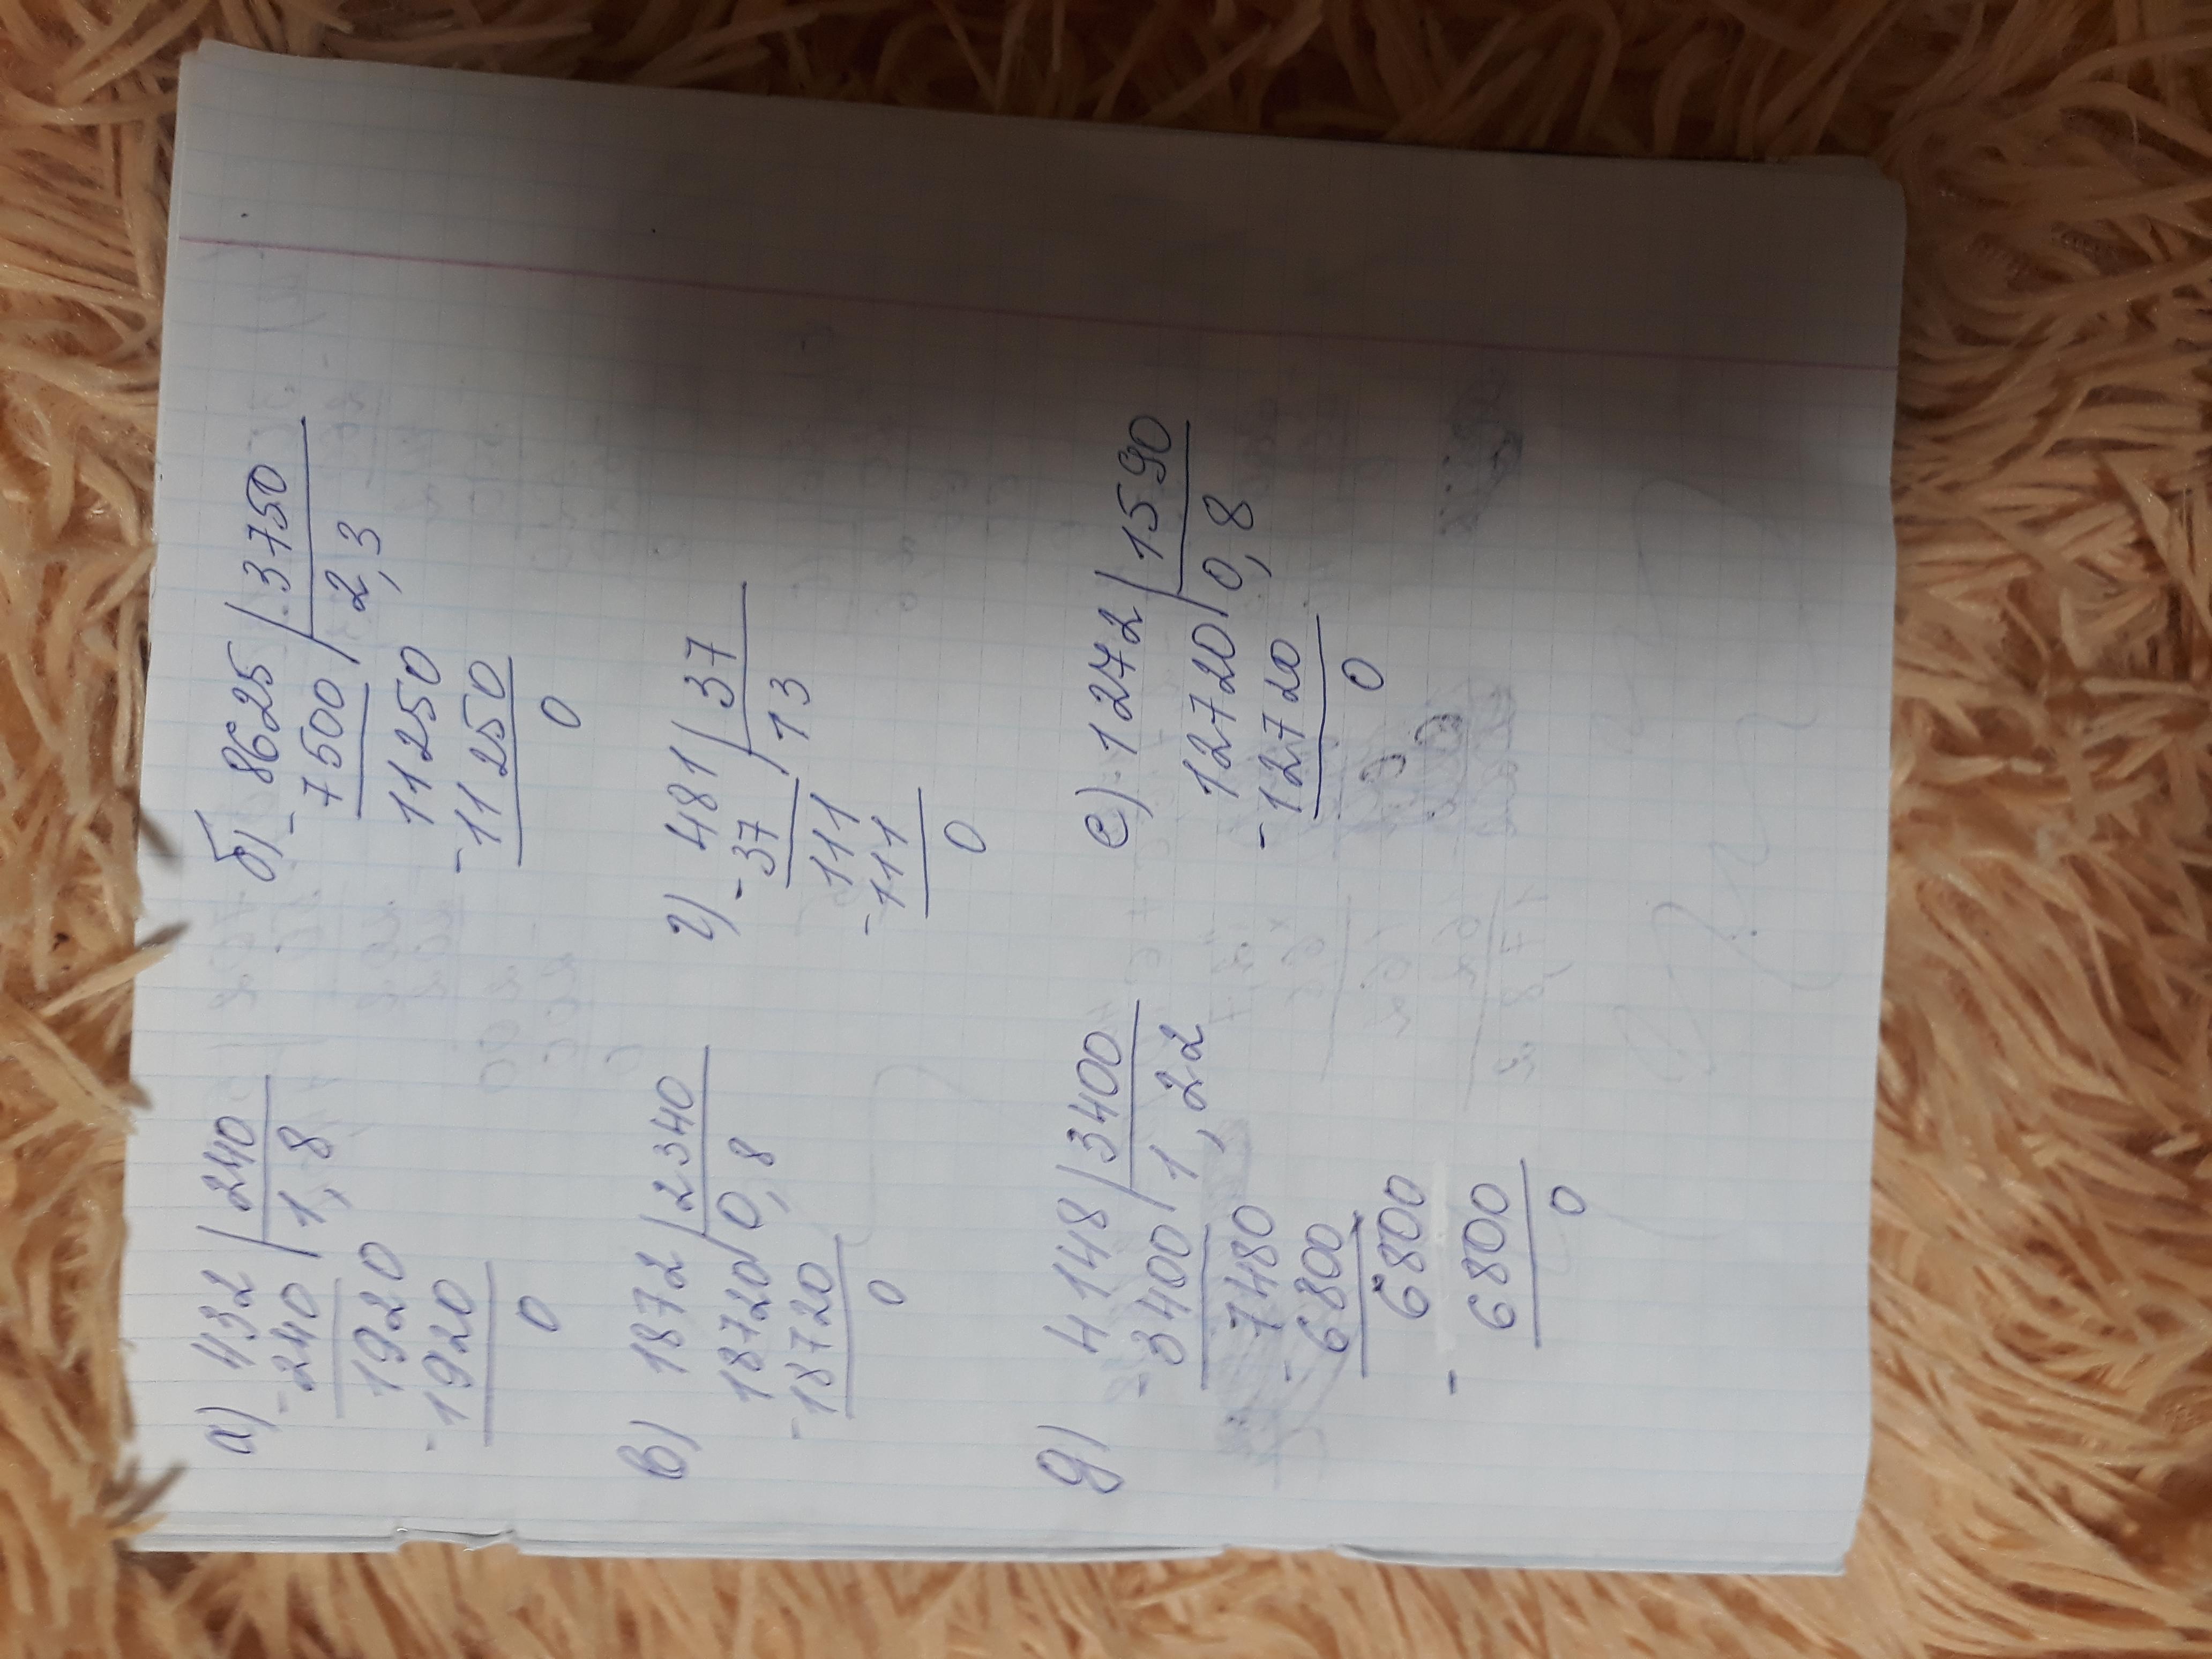 а) 432 | 240
- 240 | 1,8
1920
- 1920
0
б) - 8625 | 3750
7500 | 2,3
11250
- 11250
0
в) 1872 | 2340
18720 | 0,8
- 18720
0
г) 481 | 37
- 37 | 13
111
- 111
0
д) 4148 | 3400
- 3400 | 1,22
7480
- 6800
6800
- 6800
0
е) 1272 | 1590
12720 | 0,8
- 12720
0